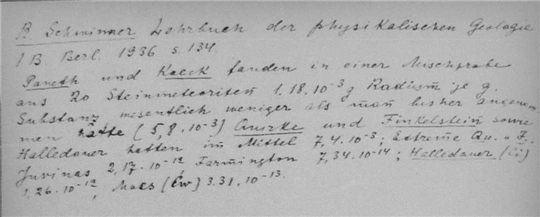 R Schwinner Lehrbuch der physikalischen Geologie
I B. Berl. 1936 S. 134
Paneth und Koeck fanden in einer Mischprobe
aus 20 Steinmeteoriten 1,18.10⁻³ g Radium je g.
Substanz wesentlich weniger als man bisher angenom
men hätte (5,8.10⁻³) Quirke und Finkelstein sowie
Halledauer hatten im Mittel 7,4.10⁻³, Extreme Qu. u. F.
Juvinas 2,17.10⁻¹² Farmington 7,34.10⁻¹⁴; Halledauer
1,26.10⁻¹², Mocs 3.31.10⁻¹³.